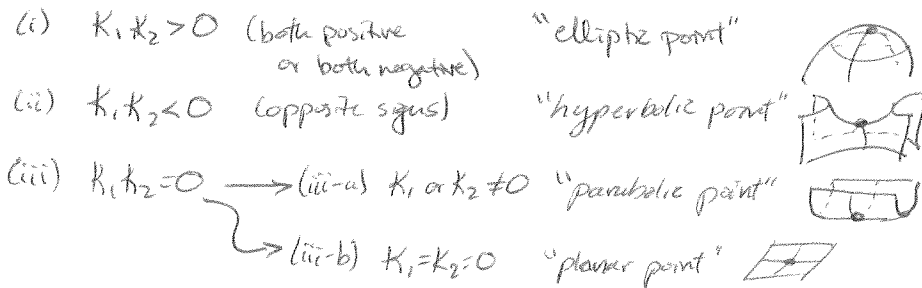 (i) K₁K₂>0 (both positive "elliptic point"
or both negative)
(ii) K₁K₂<0 (opposite signs) "hyperbolic point"
(iii) K₁K₂=0 → (iii-a) K₁ or K₂≠0 "parabolic point"
(iii-b) K₁=K₂=0 "planar point"